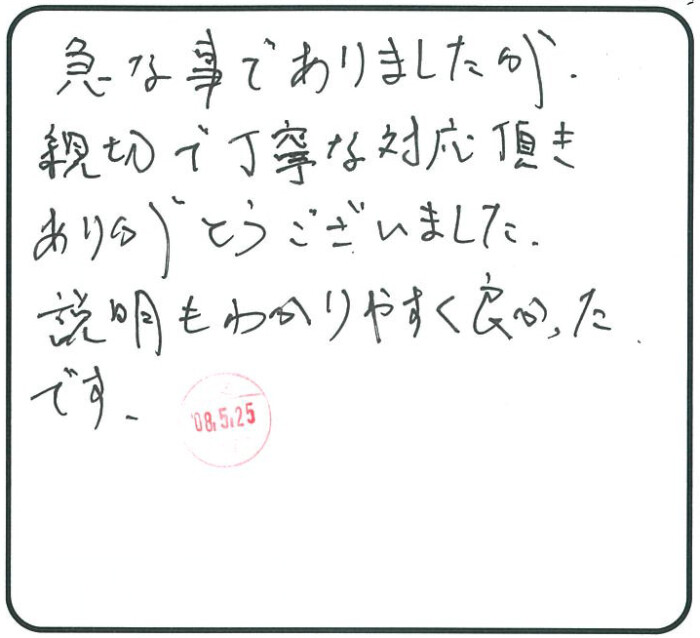 急な事でありましたが、
親切で丁寧な対応頂き
ありがとうございました。
説明もわかりやすく良かった
です。
'08.5.25